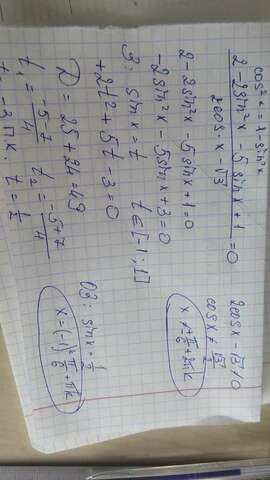 cos²x = 1 - sin²x
2 - 2sin²x - 5 sin x + 1
2cos x - √3
= 0
2 - 2sin²x - 5sin x + 1 = 0
-2sin²x - 5sin x + 3 = 0
З: sin x = t t ∈ [-1; 1]
+2t² + 5t - 3 = 0
D = 25 + 24 = 49
t₁ = -5-7 / 4 t₂ = -5+7 / 4
t₁ = -3 П.К. t = 1/2
2cos x - √3 ≠ 0
cos x ≠ √3/2
x ≠ ±π/6 + 2πk
ОЗ: sin x = 1/2
x = (-1)ᵏ π/6 + πk